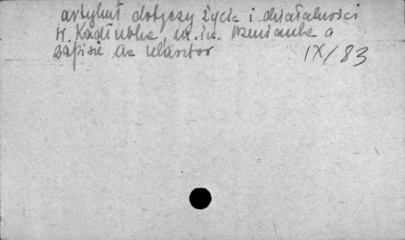 artykuł dotyczy życia i działalności
W. Kadłubka, m.in. wzmianka o
zapisie na klasztor IX/83